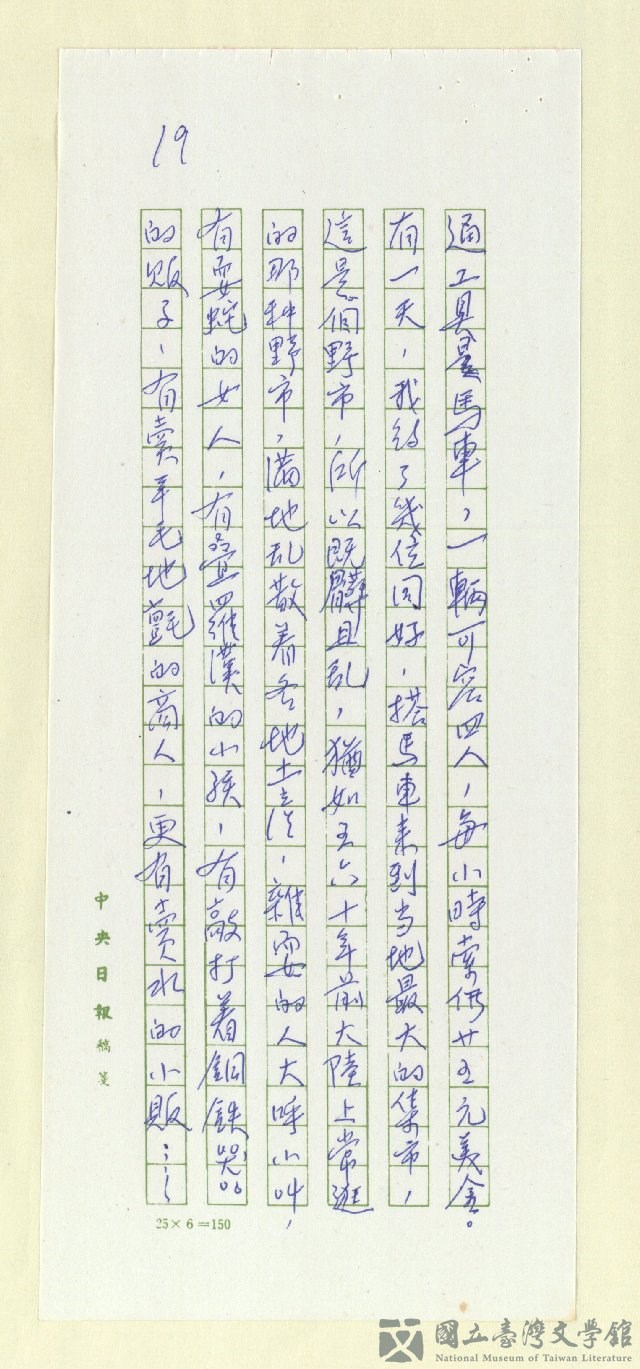 19
通工具是馬車，一輛可容四人，每小時索價廿五元美金。
有一天，我約了幾位同好，搭馬車来到当地最大的集市，
這是個野市，所以既髒且乱，猶如五六十年前大陸上常逛
的那种野市，满地乱散着各地土产，雜耍的人大呼小叫，
有耍蛇的女人，有疊羅漢的小孩，有敲打着銅鉄器
的販子，有卖羊毛地氈的商人，更有卖水的小販……
中央日報稿箋
25×6=150
國立臺灣文學館
National Museum of Taiwan Literature